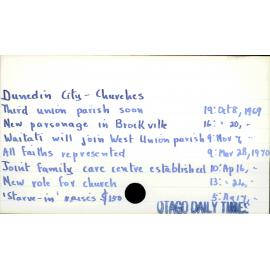 Dunedin City - Churches
Third union parish soon 19: Oct 8, 1969
New parsonage in Brockville 16: " 20, -
Waitati will join West Union parish 9: Nov 7, -
All Faiths represented 9: Mar 28, 1970
Joint family care centre established 10: Ap 16, -
New role for church 13: " 24, -
'Starve-in' raises $150 5: Ag 17, -
OTAGO DAILY TIMES